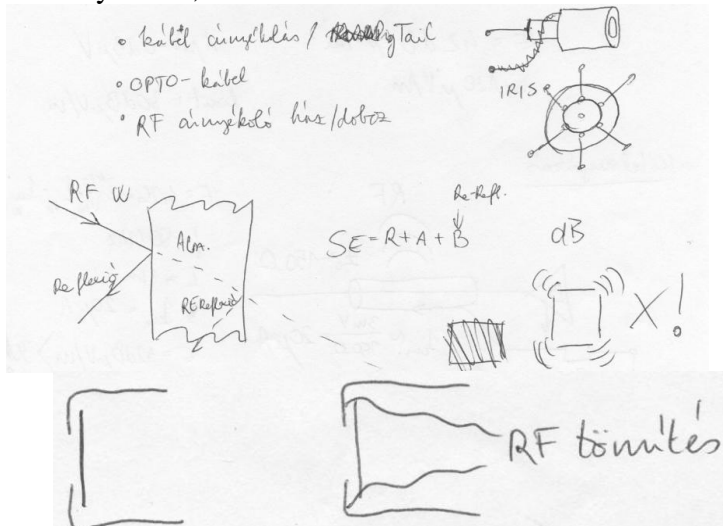 • kábel árnyékolás / PigTail
• OPTO-kábel
• RF árnyékoló ház/doboz
IRIS
RF W
Reflexió
Alm.
REReflexió
Re-Refl.
SE = R + A + B
dB
X!
RF tömítés